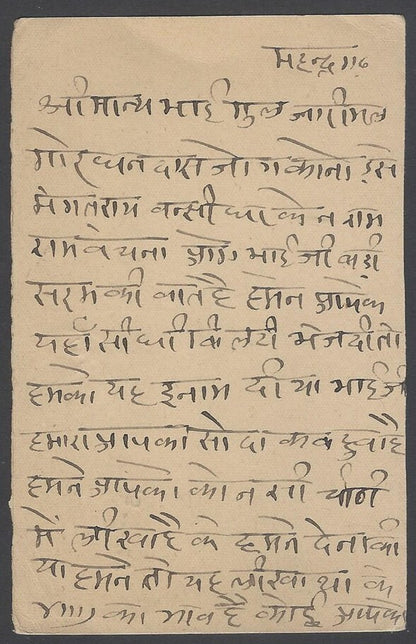 महन्द्रगढ
श्रीमान्य भाई मुल जारीमल
गोरधनदास जोग कोना इसे
मेगतराय वन्सीधर के न राम
राम वंचना आगे भाई जी बड़ी
सरम की बात है हमने आपके
यहाँ सीधी बिलटी भेज दी तो
हमको यह इनाम दीया भाई जी
हमारा आपका सोदा कब हुवा है
हमने आपको कोनसी चीठी
में लीखा है के हमने देना की
या हमने तो यह लीखा था के
का भाव है कोई आपके